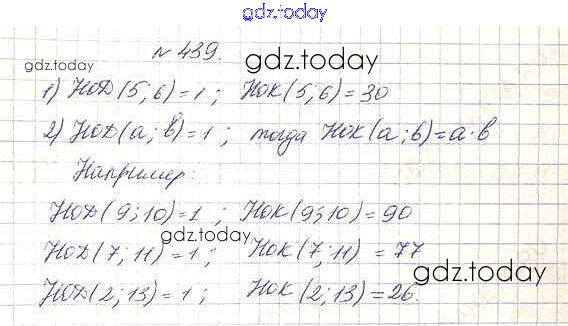 gdz.today
№ 439.
gdz.today gdz.today
1) НОД(5; 6)=1; НОК(5; 6)=30
2) НОД(a; b)=1; тогда НОК(a; b)=a·b
Например:
НОД(9; 10)=1; НОК(9; 10)=90
gdz.today
НОД(7; 11)=1; НОК(7; 11) =77
gdz.today
НОД(2; 13)=1; НОК(2; 13)=26.